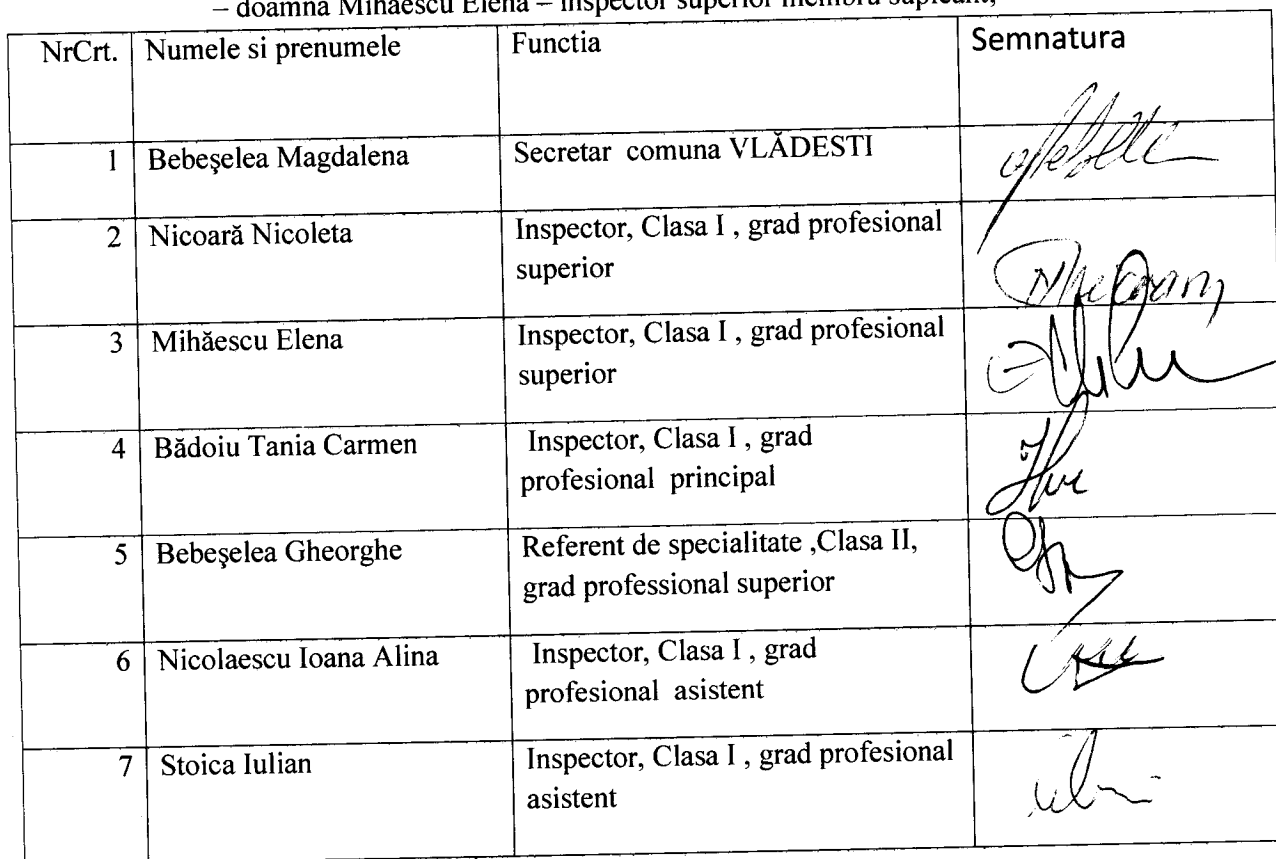 – doamna Mihăescu Elena – inspector superior membru supleant;
NrCrt. Numele si prenumele Functia Semnatura
1 Bebeşelea Magdalena Secretar comuna VLĂDESTI
2 Nicoară Nicoleta Inspector, Clasa I , grad profesional
superior
3 Mihăescu Elena Inspector, Clasa I , grad profesional
superior
4 Bădoiu Tania Carmen Inspector, Clasa I , grad
profesional principal
5 Bebeşelea Gheorghe Referent de specialitate ,Clasa II,
grad professional superior
6 Nicolaescu Ioana Alina Inspector, Clasa I , grad
profesional asistent
7 Stoica Iulian Inspector, Clasa I , grad profesional
asistent